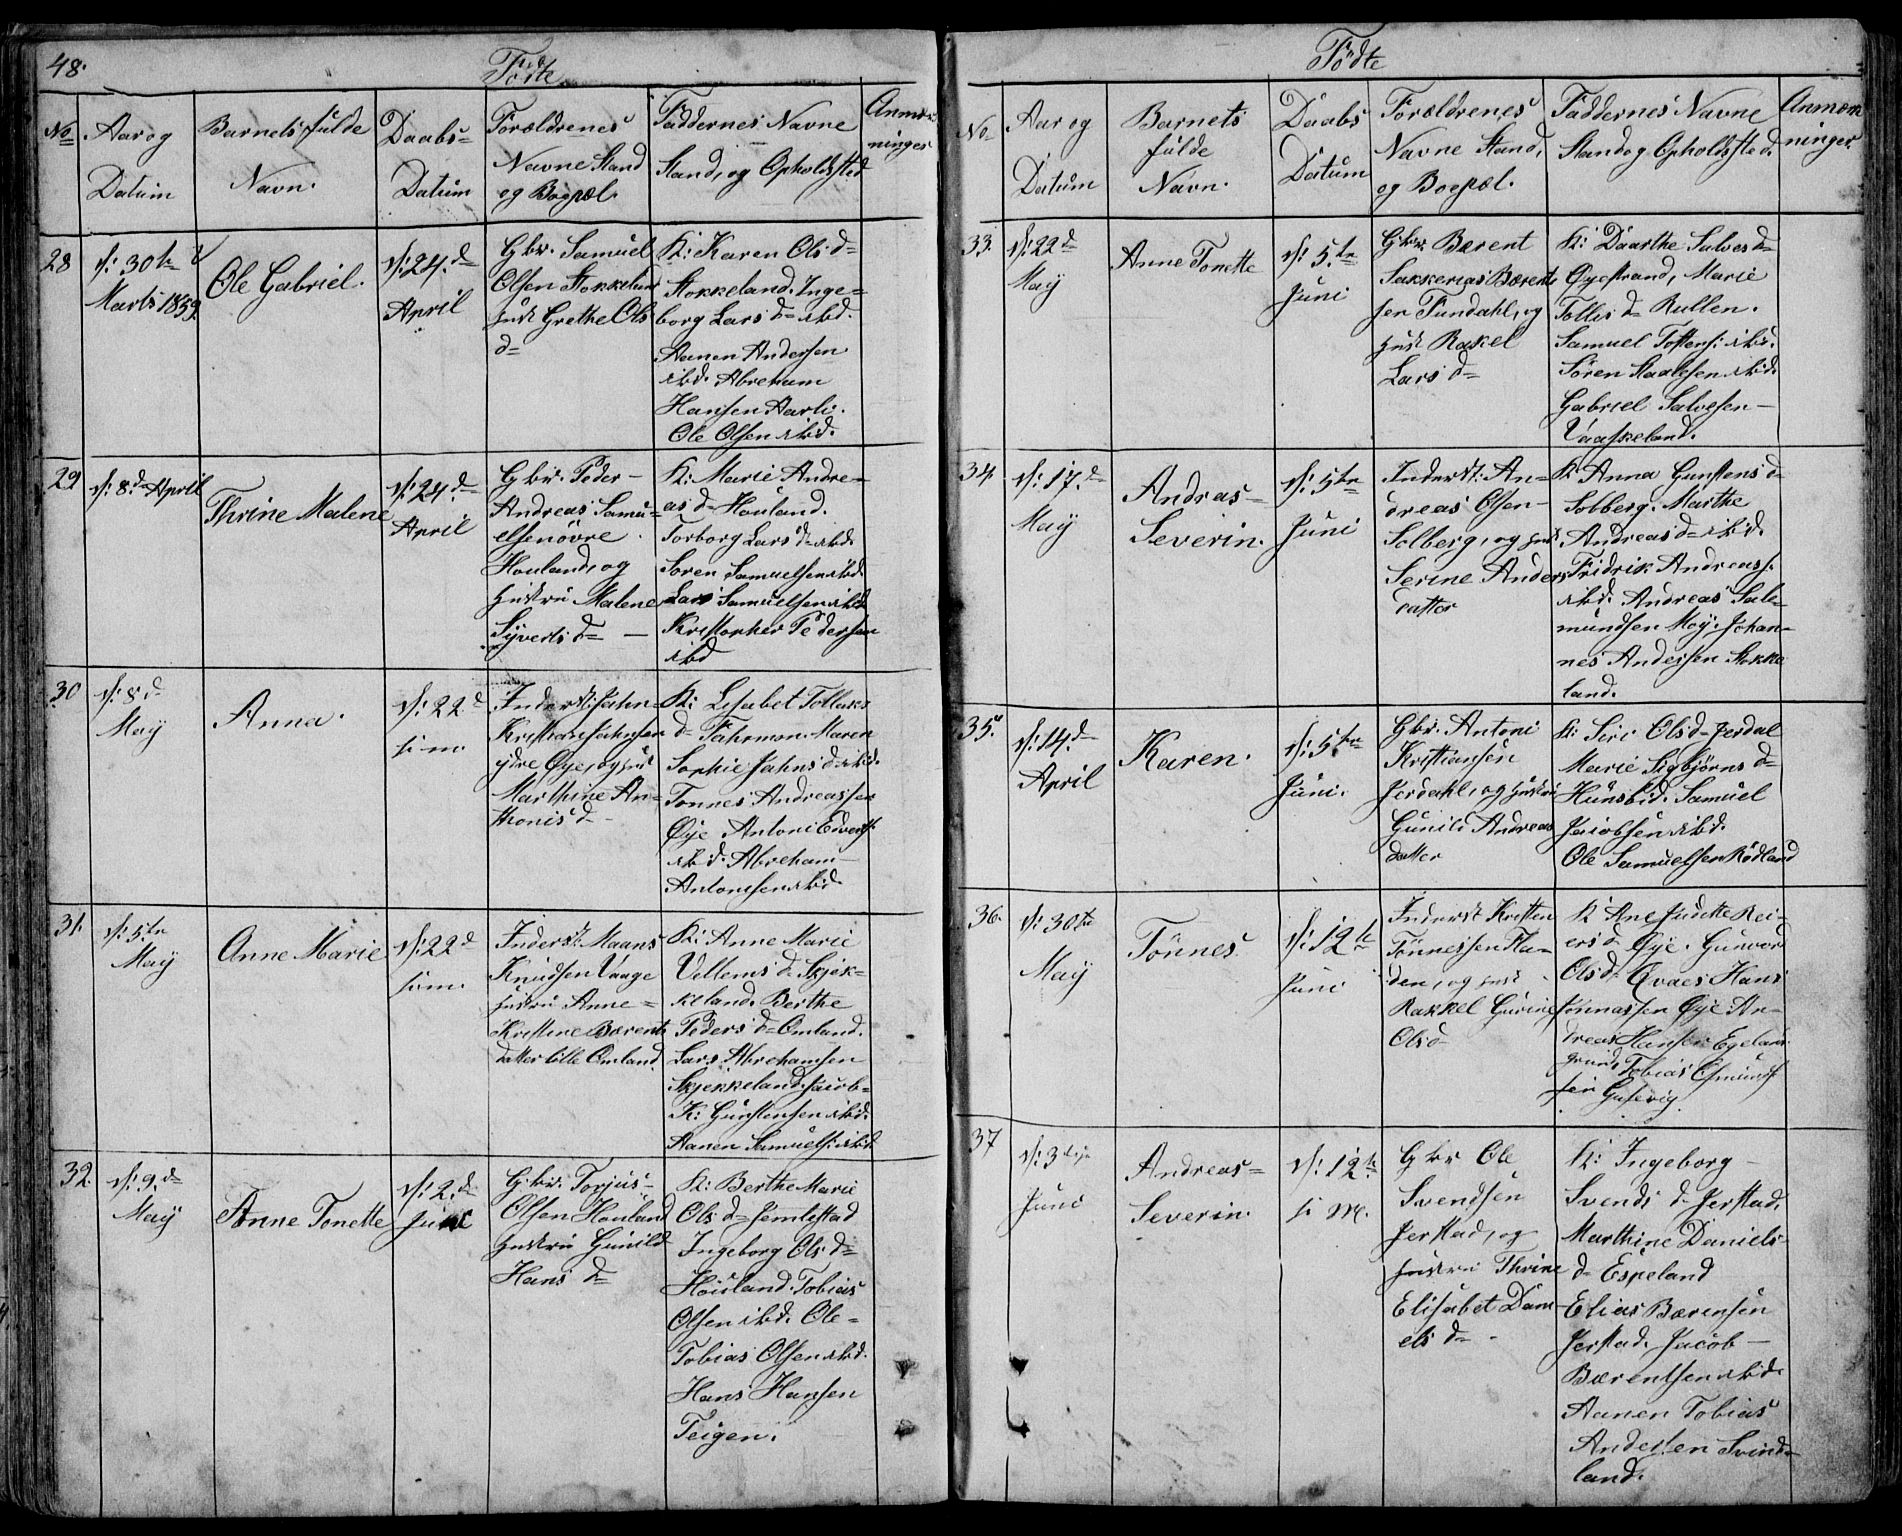 48.
Födte
No
Aar og
Datum
Barnets fulde
Navn.
Daabs-
Datum
Forældrenes
Navne Stand
og Boepæl.
Faddernes Navne
Stand, og Opholdsted
Anmærk
ninger
28
d: 30te
Marts 1859.
Ole Gabriel.
d: 24. de
April
Gbr. Samuel
Olsen Stokkelan
Grethe Ols
d=
K: Karen Ols d=
Stokkeland. Inge=
borg Lars d= ibd.
Aanen Andersen
ibd. Abreham
Hansen Aarli.
Ole Olsen ibd.
29
d: 8. d April
Thrine Malene
d: 24. de
April
Gbr. Peder -
Andreas Samu=
elsen övre
Houland, og
Hustru Malene
Syverts d= -
K: Marie Andre=
as d= Houland.
Torborg Lars d= ibd.
Soren Samuelsen ibd.
Lars Samuelsen ibd.
Kristopher Pedersen
ibd
30
d: 8 d
May
Anna.
d: 22 d
s. m.
Inderst: Jahn=
Kristian Jahnsen
ydre Öye, og
Marthine An=
thonis d=
K: Lisabet Tollaks
d= Fahrmon. Maren
Sophie Jahns d= ibd.
Tonnes Andreassen
Öye Antoni Edverts.
ibd. Abreham -
Antonisen ibd.
31.
d: 5te
May
Anne Marie
d: 22 d
s. m.
Inderst. Maans
Knudsen Vaage
hustru Anne=
Kristine Bærents
datter lille Omland.
K: Anne Marie
Villems d= Skjek=
keland. Berthe
Peders d= Omland.
Lars Abrehamsen
Skjekkeland. Jacob=
K: Gunstensen ibd.
Aanen Samuels: ibd.
32.
d: 9. de
May
Anne Tonette
d: 2. de
Juni
Gbr. Torjus -
Olsen Houland
hustru Gunild
Hans d=
K: Berthe Marie
Ols d= Jemlestad
Ingeborg Ols d=
Houland. Tobias
Olsen ibd. Ole=
Tobias Olsen ibd.
Hans Hansen
Teigen.
Födte
No.
Aar og
Datum
Barnets
fulde
Navn.
Daabs
Datum
Forældrenes
Navne Stand,
og Boepæl.
Faddernes Navne
Stand og Opholdsted.
Anmær
ninger.
33.
d: 22 d=
May
Anne Tonette
d: 5. te
Juni
Gbr. Bærent
Sakkerias Bærent
sen Fundahl, og
Rakel
Lars d=
K: Daarthe Salves d=
Öyestrand, Marie
Tollis d= Rullen.
Samuel Toftens: ibd.
Sören Staalesen ibd.
Gabriel Salvesen -
Vaaskeland.
34
d: 17. de
May
Andras=
Severin.
d: 5te
Juni
Inderst: An=
dreas Olsen -
Solberg, og
Serine Anders
datter
K: Anna Gunstens d=
Solberg. Marthe
Andreas d= ibd.
Fridrik Andreass.
ibd. Andreas Sale=
mundsen Moy. Johan=
nes Andersen Stokke
land.
35.
d: 14. de
April
Karen.
d: 5te
Juni.
Gbr. Antoni
Kristiansen
Jerdahl, og hustru
Gunild Andreas
datter
K: Siri Ols d= Jerdal
Marie Sigbjörns d=
Hunsbid. Samuel
Jacobsen ibd.
Ole Samuelsen Rödland
36.
d: 30te
May
Tönnes
d: 12 te
Juni
Inderst Kristen
Tönnessen Ha=
den, og
Rakkel Gurine
Ols d
K: Ane Judette Rei=
ers d Öye. Gunvor
Ols d= Hans
Jonnassen Öye An=
dreas Hansen Egelans
grund, Tobias Osmunds
sen Gusevig.
37
d: 3die
Juni
Andreas=
Severin.
d: 12te
s. M.
Gbr Ole
Svendsen
Jerstad, og
hustru Thrine
Elisabet Dani
els d= -
K: Ingeborg -
Svends d= Jerstad.
Marthine Daniels=
d= Espeland
Elias Bærensen
Jerstad. Jacob -
Bærentsen ibd.
Aanen Tobias
Andersen Svind=
land.